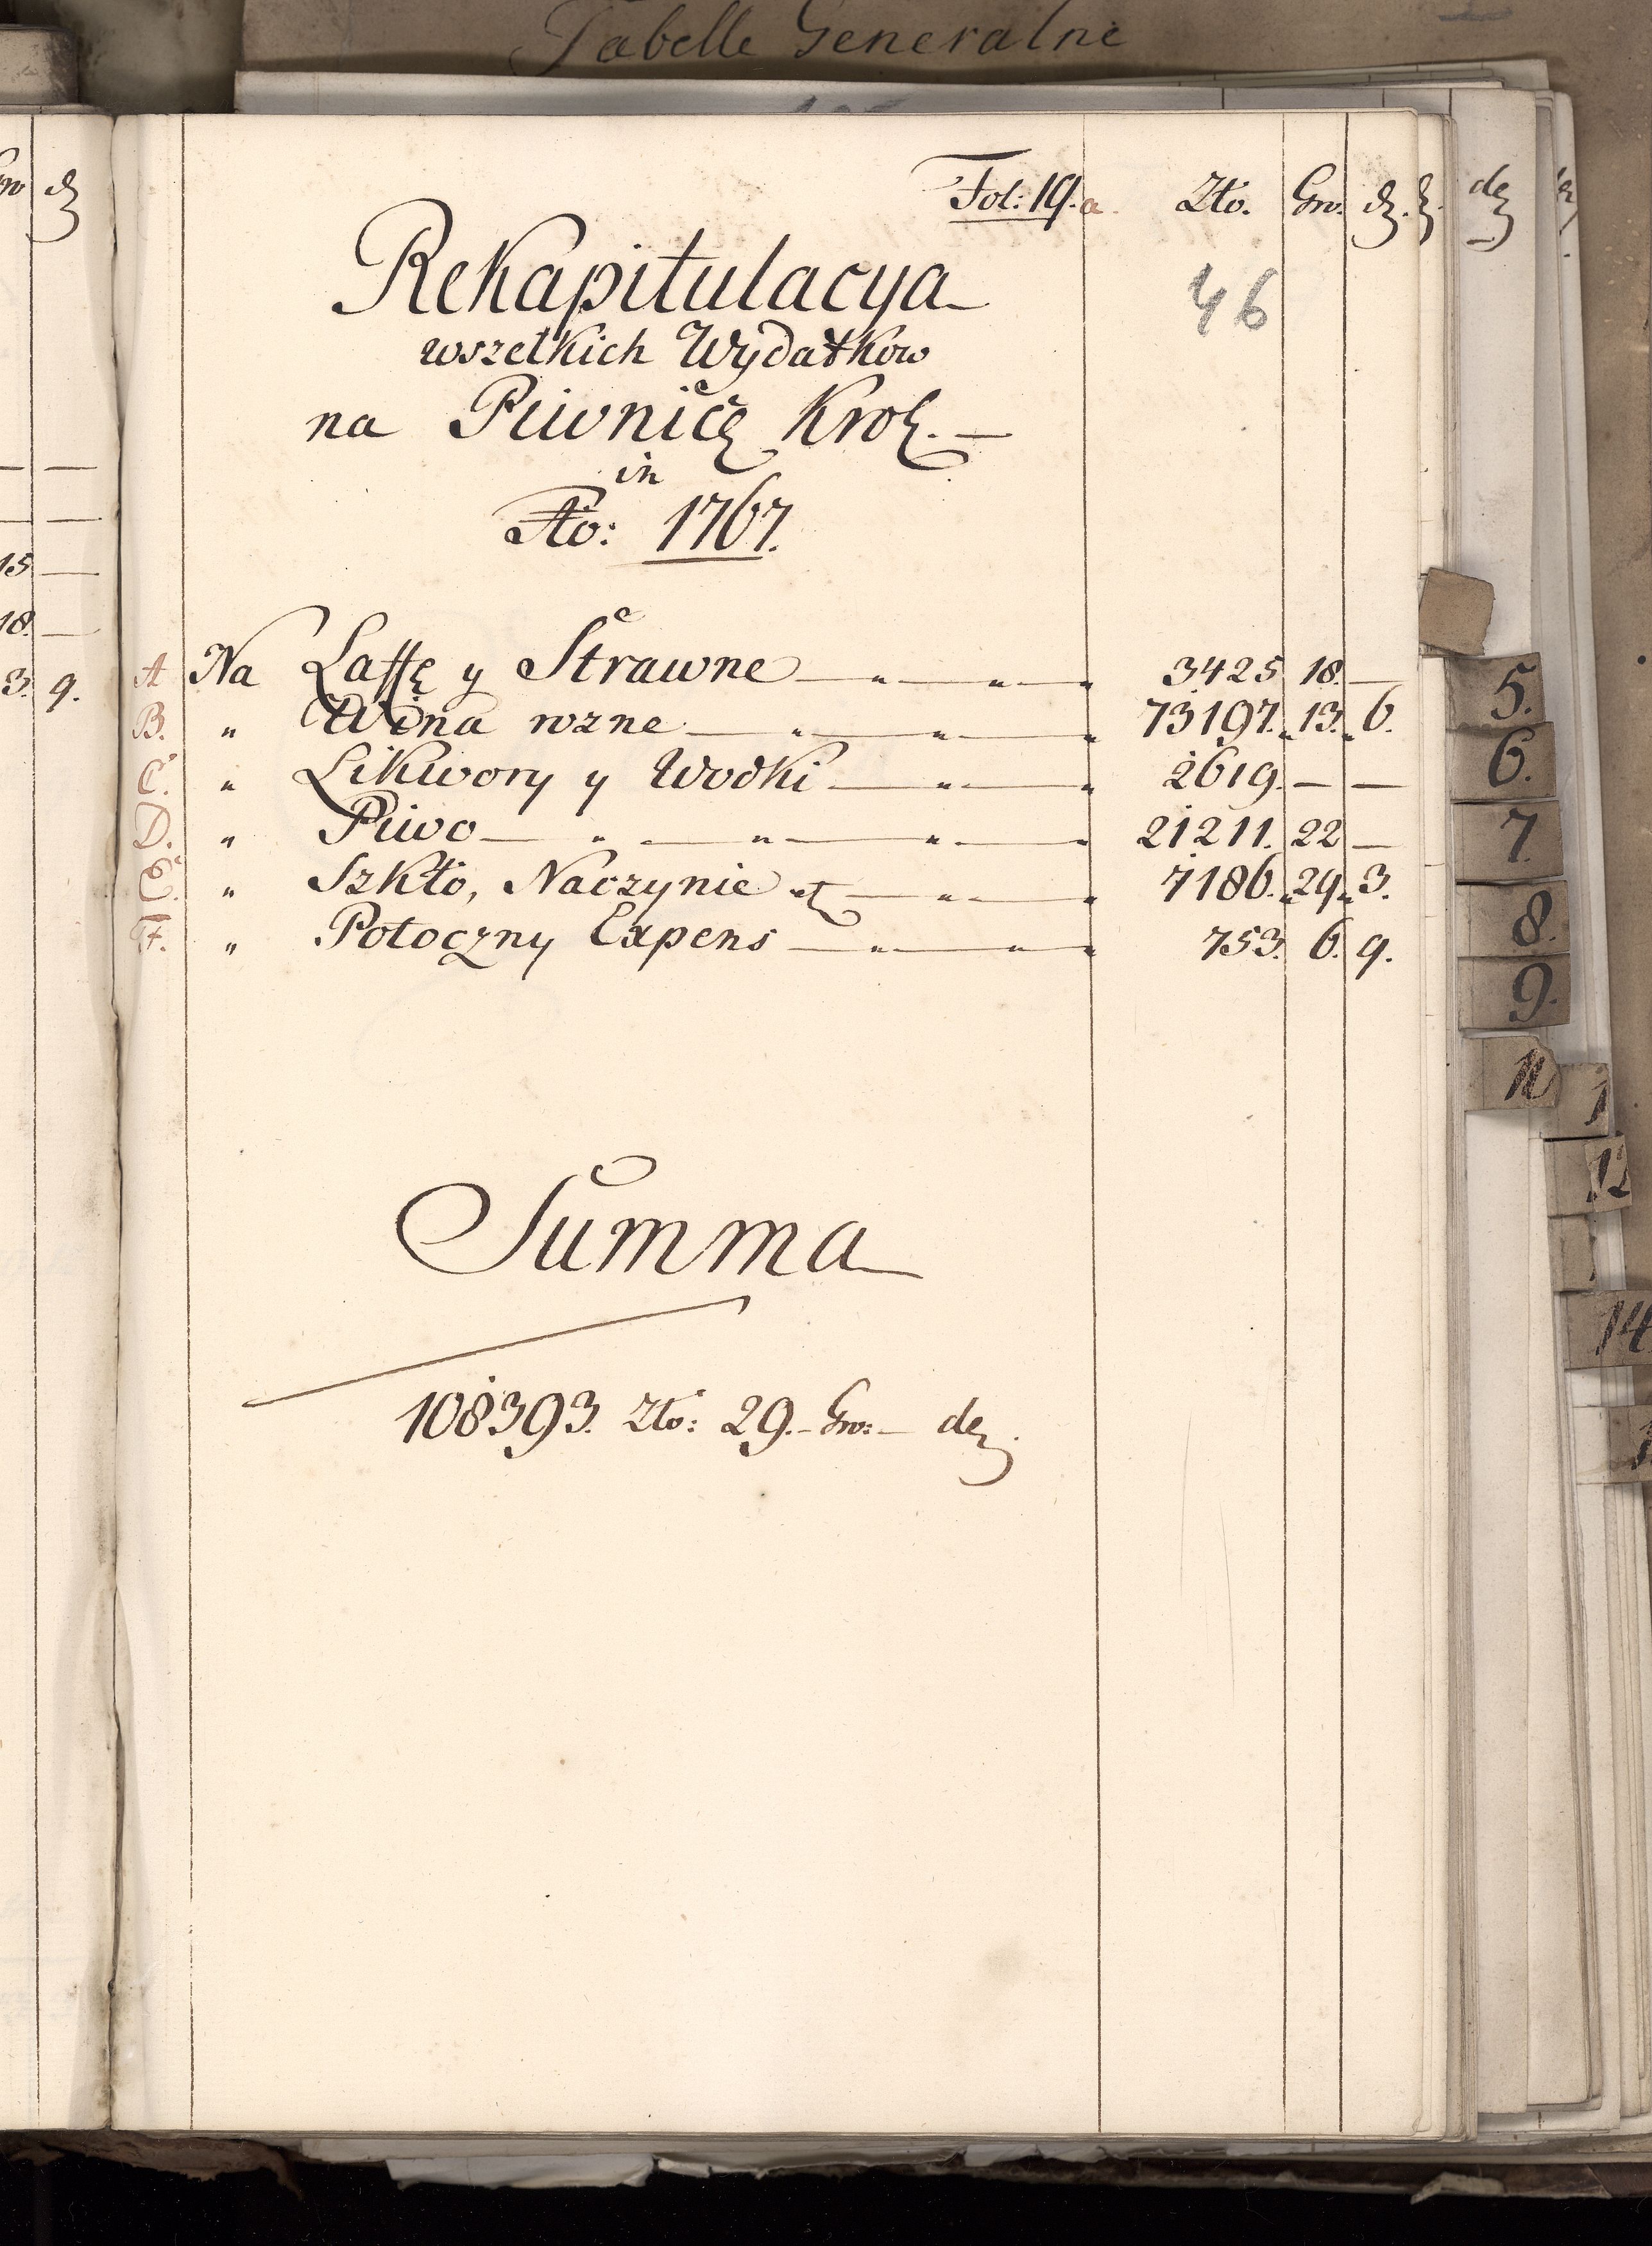 Tabelle Generalne
Fol: 19. a. Zło. Gro. dz.
46
Rekapitulacya
wszelkich Wydatkow
na Piwnicę Krol.
in
Ao: 1767.
A Na Laffę y Strawne 3425 18. —
B. " Wina rozne 73197. 13. 6.
C. " Likwory y Wodki 2619. — —
D. " Piwo 21211. 22 —
E. " Szkło, Naczynie etc 7186. 29. 3.
F. " Potoczny Expens 753. 6. 9.
Summa
108393. Zło: 29. Gro: — dez.
15 —
18. —
3. 9.
5.
6.
7.
8.
9.
11
12
14